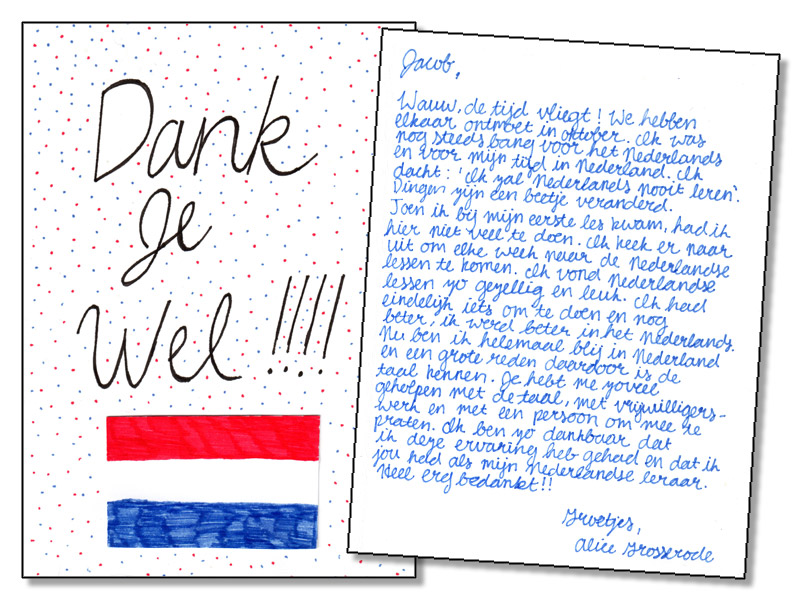 Dank
Je
Wel !!!!
Jacob,
Wauw, de tijd vliegt! We hebben
elkaar ontmoet in oktober. Ik was
nog steeds bang voor het Nederlands
en voor mijn tijd in Nederland. Ik
dacht: 'Ik zal Nederlands nooit leren'.
Dingen zijn een beetje veranderd.
Toen ik bij mijn eerste les kwam, had ik
hier niet veel te doen. Ik keek er naar
uit om elke week naar de Nederlandse
lessen te komen. Ik vond Nederlandse
lessen zo gezellig en leuk. Ik had
eindelijk iets om te doen en nog
beter, ik werd beter in het Nederlands.
Nu ben ik helemaal blij in Nederland
en een grote reden daardoor is de
taal kennen. Je hebt me zoveel
geholpen met de taal, met vrijwilligers-
werk en met een persoon om mee te
praten. Ik ben zo dankbaar dat
ik deze ervaring heb gehad en dat ik
jou had als mijn Nederlandse leraar.
Heel erg bedankt!!
Groetjes,
Alice Grosserode